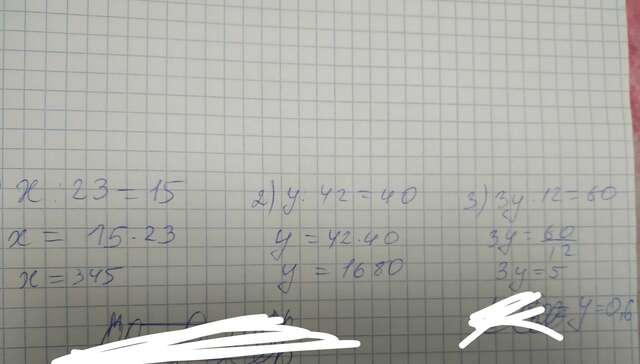 x : 23 = 15
x = 15 · 23
x = 345
2) y · 42 = 40
y = 42 · 40
y = 1680
3) 3y · 12 = 60
3y = 60/12
3y = 5
y = 0,6